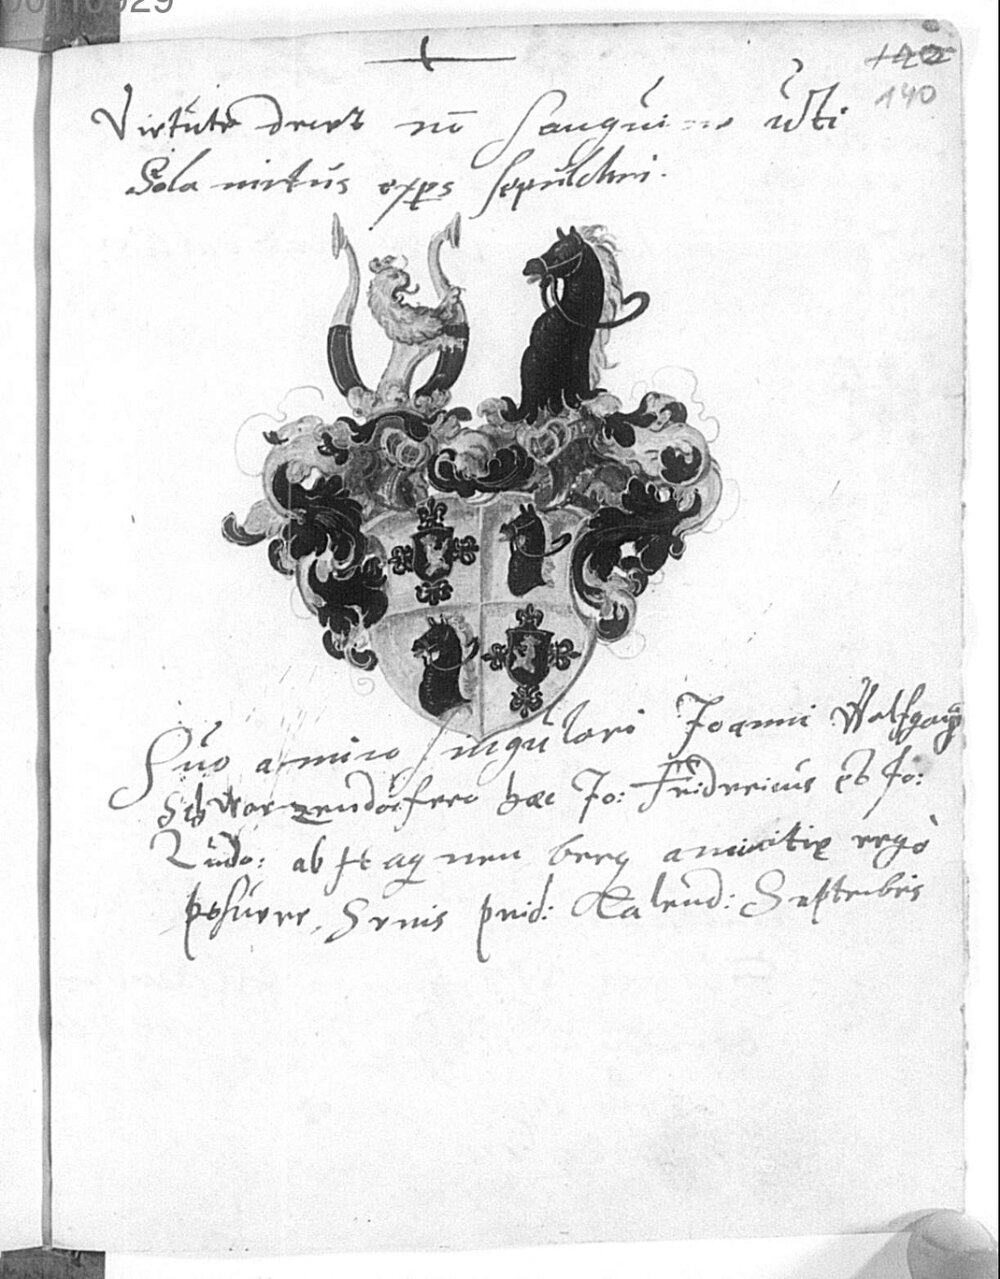 00110929
122
140
Virtute decet nō sanguine niti
Sola virtus expers sepulchri.
Suo amico singulari Joanni Wolfgang
Schwartzendorfero hæc Jo: Fridericus et Jo:
Ludo: ab Hagenn berg amicitiæ ergò
posuere, Senis prid: Kalend: Septembris